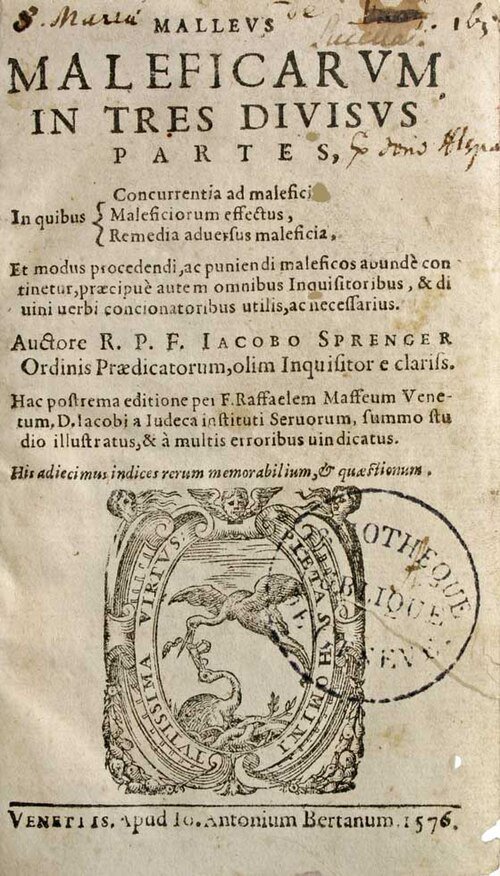 S. Maria de
MALLEVS
MALEFICARVM
IN TRES DIVISVS
PARTES,
Ex dono
Concurrentia ad malefici
In quibus { Maleficiorum effectus,
Remedia aduersus maleficia,
Et modus procedendi, ac puniendi maleficos abundè con
tinetur, præcipuè autem omnibus Inquisitoribus, & di
uini uerbi concionatoribus utilis, ac necessarius.
Auctore R. P. F. IACOBO SPRENGER
Ordinis Prædicatorum, olim Inquisitor e clariss.
Hac postrema editione per F. Raffaelem Maffeum Vene-
tum, D. Iacobi a Iudeca instituti Seruorum, summo stu
dio illustratus, & à multis erroribus uindicatus.
His adiecimus indices rerum memorabilium, & quæstionum.
PIETAS HOMINI
TVTISSIMA VIRTVS
OTHEQUE
BLIQUE
VENETIIS, Apud Io. Antonium Bertanum. 1576.